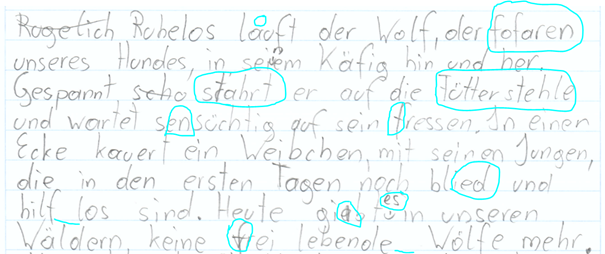 Rugelich Ruhelos läuft der Wolf, der fofaren
unseres Hundes, in seinem Käfig hin und her.
Gespannt scho stahrt er auf die Fütterstehle
und wartet sensüchtig auf sein fressen. In einen
Ecke kauert ein Weibchen, mit seinen Jungen,
die in den ersten Tagen noch blied und
hilf los sind. Heute giebt es in unseren
Wäldern, keine frei lebende Wölfe mehr.